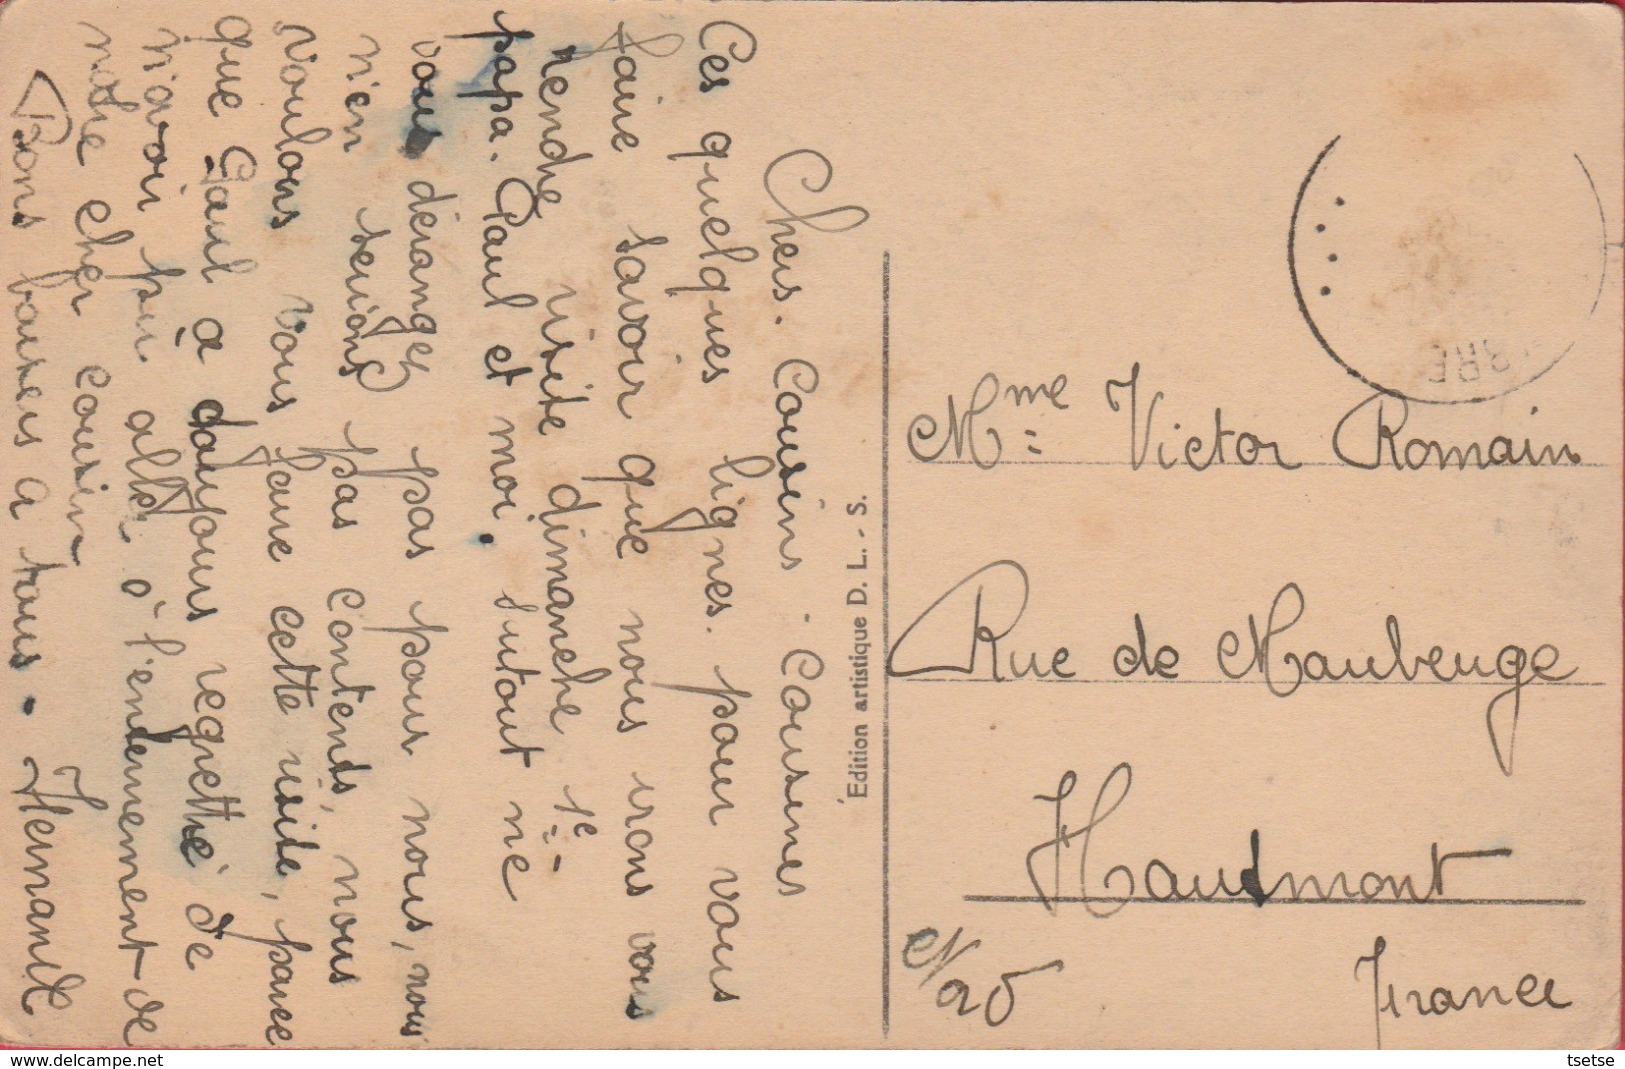 Chers. Cousins. Cousines
Ces quelques lignes. pour vous
faire savoir que nous irons vous
rendre visite dimanche 1e-
papa. Paul et moi. Surtout ne
vous déranger pas pour nous, nous
n'en serions pas contents, nous
voulons vous faire cette visite, parce
que Paul a toujours regretté de
n'avoir pu aller à l'enterrement de
notre cher cousin
Bons baisers a tous. Hermance
Edition artistique D. L. - S.
RRE
Mme Victor Romain
Rue de Maubeuge
N 25
Hautmont
France
www.delcampe.net
tsetse